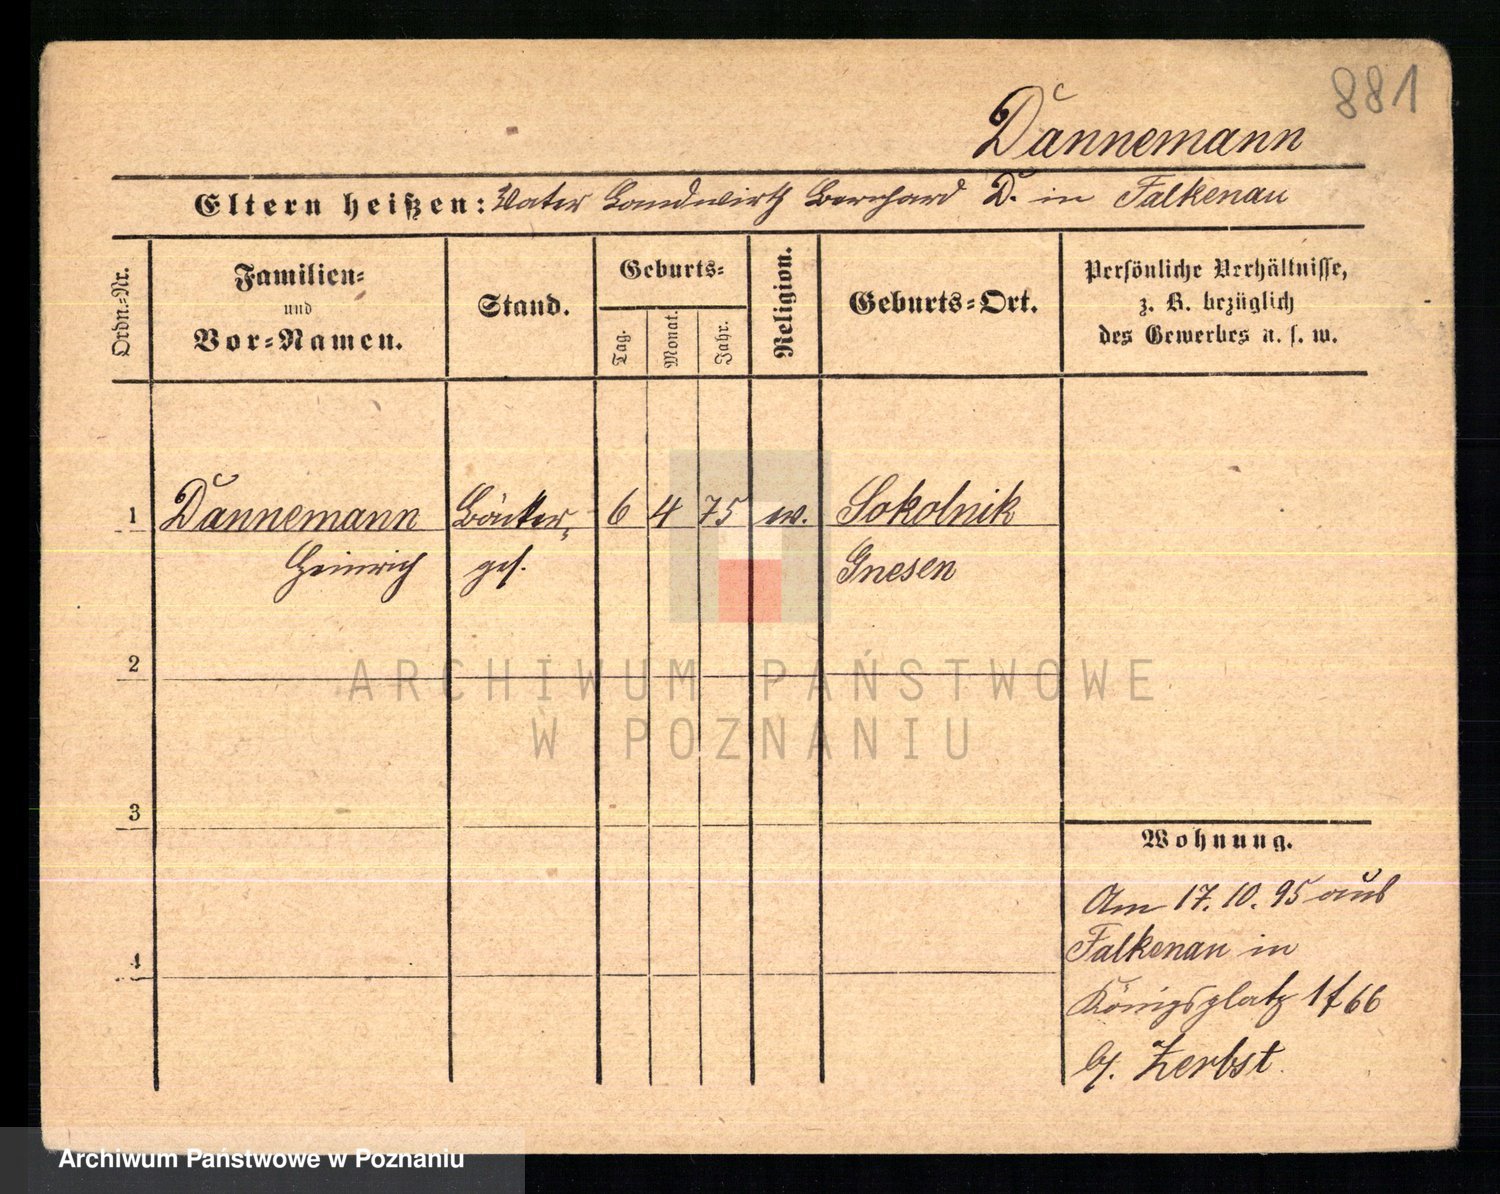 881
Dannemann
Eltern heißen: Vater Landwirth Bernhard D. in Falkenau
Ordn.-Nr.
Familien-
und
Vor-Namen.
Stand.
Geburts-
Tag.
Monat.
Jahr.
Religion.
Geburts-Ort.
Persönliche Verhältnisse,
z. B. bezüglich
des Gewerbes u. s. w.
1 Dannemann Bäcker- 6 4 75 ev. Sokolnik
Heinrich ges. Gnesen
2
3
4
Wohnung.
Am 17.10.95 aus
Falkenau in
Königsplatz 1 f 66
b/. Zerbst
ARCHIWUM PAŃSTWOWE
W POZNANIU
Archiwum Państwowe w Poznaniu